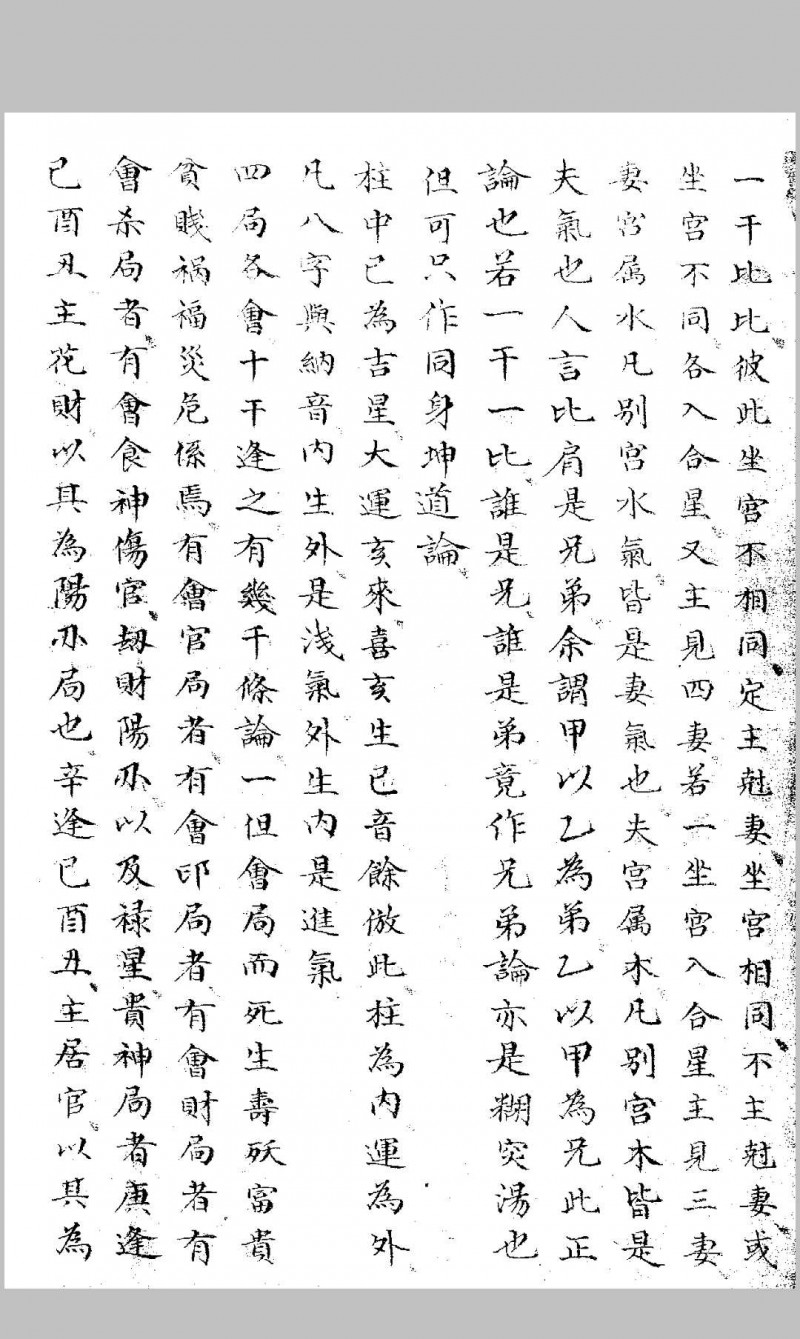 一干比比彼此坐宮不相同定主尅妻坐宮相同不主尅妻或
坐宮不同各入合星又主見四妻若一坐宮入合星主見三妻
妻宮属水凡别宮水氣皆是妻氣也夫宮属木凡别宮木皆是
夫氣也人言比肩是兄弟余謂甲以乙為弟乙以甲為兄此正
論也若一干一比誰是兄誰是弟竟作兄弟論亦是糊突湯也
但可只作同身坤道論
柱中巳為吉星大運亥來喜亥生巳音餘倣此柱為內運為外
凡八字與納音內生外是浅氣外生內是進氣
四局各會十干逢之有幾千條論一但會局而死生壽殀富貴
貧賤禍福災危係焉有會官局者有會印局者有會財局者有
會杀局者有會食神傷官劫財陽刃以及禄星貴神局者庚逢
巳酉丑主花財以其為陽刃局也辛逢巳酉丑主居官以其為